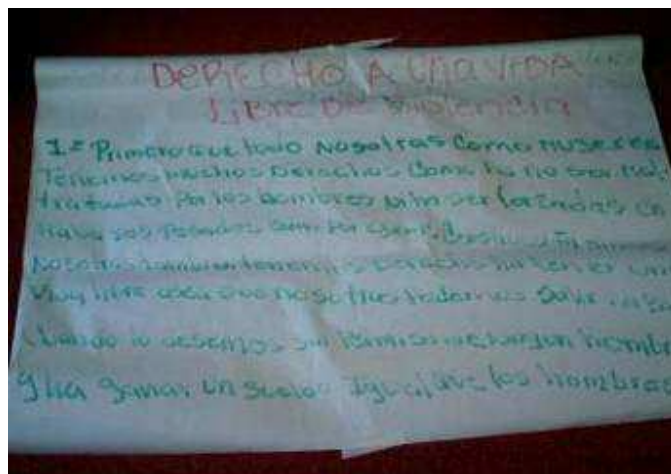 DERECHO A UNA VIDA
LIBRE DE VIOLENCIA
1= Primero que todo Nosotras Como mujeres
Tenemos muchos Derechos Como ha no ser mal
tratadas Por los hombres ni ha ser forzadas
trabajos Pesados
Nosotras tambien tenemos Derecho ha tener una
libre nosotras Podamos Salir
Cuando lo desemos sin Permiso de ningun hombre
y ha ganar un sueldo igual que los hombres